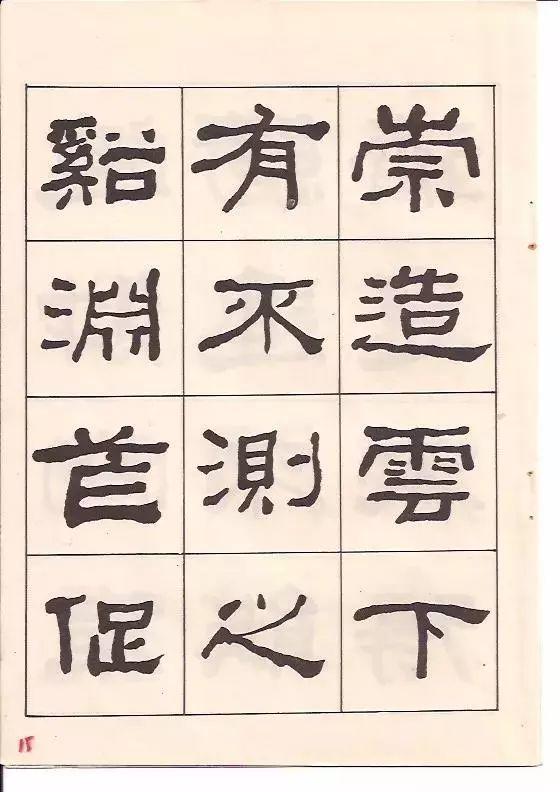 崇造雲下
有不測之
谿淵促